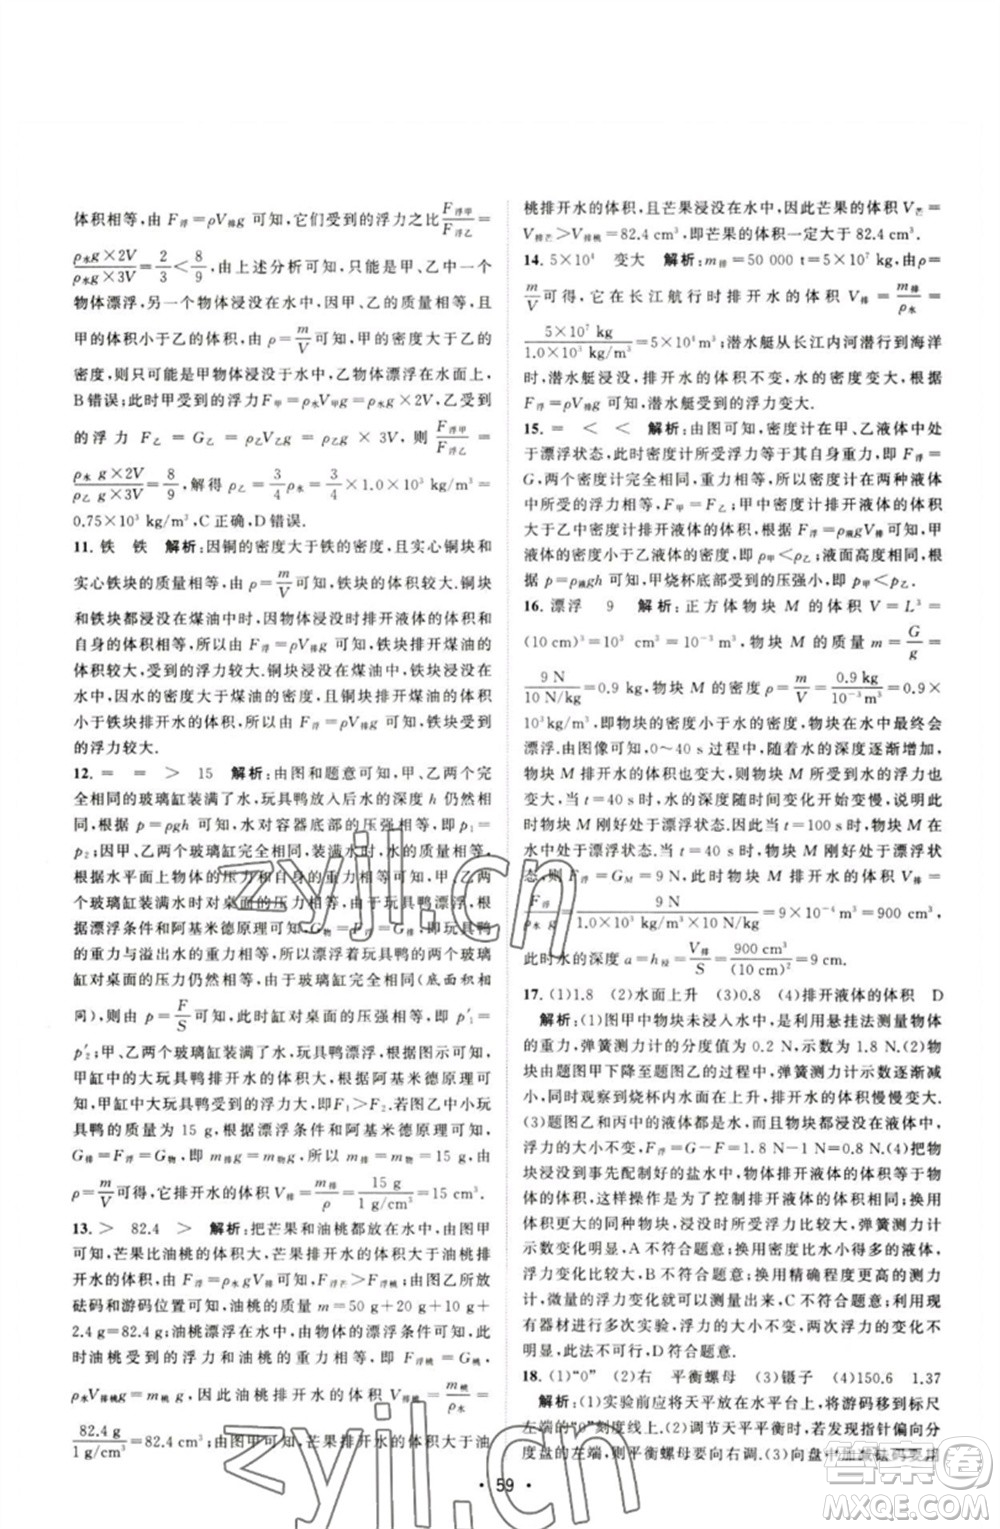 体积相等，由 F浮＝ρV排g 可知，它们受到的浮力之比 F浮甲/F浮乙＝
ρ水g×2V/ρ水g×3V＝2/3＜8/9，由上述分析可知，只能是甲、乙中一个
物体漂浮，另一个物体浸没在水中，因甲、乙的质量相等，
甲的体积小于乙的体积，由 ρ＝m/V 可知，甲的密度大于乙的
密度，则只可能是甲物体浸没在水中，乙物体漂浮在水面上，
B错误；此时甲受到的浮力 F甲＝ρ水V甲g＝ρ水g×2V，乙受到
的浮力 F乙＝G乙＝ρ乙V乙g＝ρ乙g×3V，则 F浮甲/F浮乙＝
ρ水g×2V/ρ乙g×3V＝8/9，解得 ρ乙＝3/4ρ水＝3/4×1.0×10³ kg/m³＝
0.75×10³ kg/m³，C正确，D错误.
11. 铁　铁　解析：因铜的密度大于铁的密度，且实心铜块和
实心铁块的质量相等，由 ρ＝m/V 可知，铁块的体积较大.铜块
和铁块都浸没在煤油中时，因物体浸没时排开液体的体积和
自身的体积相等，所以由 F浮＝ρV排g 可知，体积较大的铁块
排开煤油的体积较大，受到的浮力较大.铜块浸没在煤油中、铁块浸没在
水中时，因水的密度大于煤油的密度，且铜块排开煤油的体积
小于铁块排开水的体积，所以由 F浮＝ρV排g 可知，铁块受到
的浮力较大.
12. ＝　＝　＞　15　解析：由图和题意可知，甲、乙两个完
全相同的玻璃缸装满了水，玩具鸭放入后水的深度 h 仍然相
同，由 p＝ρgh 可知，水对容器底部的压强相等，即 p1＝
p2；因甲、乙两个玻璃缸完全相同，且都装满水，则根据
水平面上物体的压力和自身的重力相等可知，甲、乙
装满水时对桌面的压力相等，根据
漂浮条件和阿基米德原理可知 G物＝F浮＝G排，即玩具鸭
的重力与溢出水的重力相等，所以玩具鸭漂浮后玻璃缸
对桌面的压力仍然相等，因两玻璃缸与桌面的接触面积（相
同），则由 p＝F/S 可知，玻璃缸对桌面的压强相等，即 p′1＝
p′2；甲、乙两个玻璃缸装满了水，玩具鸭漂浮，根据图示可知，
甲缸中的大玩具鸭排开水的体积大，根据阿基米德原理可知，
甲缸中大玩具鸭受到的浮力大，即 F1＞F2.若图乙中的小
玩具鸭的质量为 15 g，根据漂浮条件和阿基米德原理可知
G排＝F浮＝G物，即 m排g＝m物g，则 m排＝m物＝15 g，由
ρ＝m/V 可得，它排开水的体积 V排＝m排/ρ＝15 g/1 g/cm³＝15 cm³.
13. ＞　82.4　＞　解析：把芒果和油桃都放在水中，由图甲
可知，芒果比油桃的体积大，且芒果浸没，油桃漂浮，则芒果排
开水的体积大，由 F浮＝ρ水gV排可知，F浮芒＞F浮桃；由图乙所放
砝码和游码位置可知，油桃的质量 m＝50 g＋20 g＋10 g＋
2.4 g＝82.4 g；油桃漂浮在水中，由物体的漂浮条件可知，
此时油桃受到的浮力和油桃的重力相等，即 F浮桃＝G桃＝
m桃g，因此油桃排开水的体积 V排桃＝F浮桃/ρ水g＝m桃g/ρ水g＝m桃/ρ水＝
82.4 g/1 g/cm³＝82.4 cm³；由图甲可知，芒果排开水的体积大于油
桃排开水的体积，且芒果浸没在水中，因此芒果的体积 V芒＝
V排芒＞V排桃＝82.4 cm³，即芒果的体积一定大于 82.4 cm³.
14. 5×10⁴　变大　解析：m排＝50 000 t＝5×10⁷ kg，由 ρ＝
m/V 可得，它在长江航行时排开水的体积 V排＝m排/ρ水＝
5×10⁷ kg/1.0×10³ kg/m³＝5×10⁴ m³；潜水艇从长江内河潜行到海洋
时，潜水艇浸没，排开水的体积不变，水的密度变大，根据
F浮＝ρ液gV排可知，潜水艇受到的浮力变大.
15. ＝　＜　＜　解析：由图可知，密度计在甲、乙液体中处
于漂浮状态，此时密度计受到的浮力等于其自身重力，即 F浮＝
G，两个密度计完全相同，重力相等，所以密度计在两个液体
中所受的浮力相等，即 F甲＝F乙；甲中密度计排开液体的体积
大于乙中密度计排开液体的体积，根据 F浮＝ρ液gV排可知，甲
液体的密度小于乙液体的密度，即 ρ甲＜ρ乙；液面高度相等，由
p＝ρ液gh 可知，甲烧杯底部受到的压强小，即 p甲＜p乙.
16. 漂浮　9　解析：正方体物块 M 的体积 V＝L³＝
(10 cm)³＝10³ cm³＝10⁻³ m³，物块 M 的质量 m＝G/g＝
9 N/10 N/kg＝0.9 kg，物块 M 的密度 ρ＝m/V＝0.9 kg/10⁻³ m³＝0.9×
10³kg/m³，即物块的密度小于水的密度，所以物块在水中最终会
漂浮.由图像可知，0～40 s过程中，随着水的深度逐渐增加，
物块 M 排开水的体积也增大，即物块 M 受到的浮力逐渐增
加，当 t＝40 s时，水的深度随时间变化开始变慢，说明此时
物块 M 刚好处于漂浮状态，当 t＝100 s时，物块 M 仍然在
水中处于漂浮.当 t＝40 s时，物块 M 刚好处于漂浮状
态，则 F浮＝GM＝9 N，此时物块 M 排开水的体积 V排＝
F浮/ρ水g＝9 N/1.0×10³ kg/m³×10 N/kg＝9×10⁻⁴ m³＝900 cm³，
此时水的深度 a＝h浸＝V排/S＝900 cm³/(10 cm)²＝9 cm.
17. (1)1.8　(2)水面上升　(3)0.8　(4)排开液体的体积　D
解析：(1)图甲中物块未浸入水中，是利用悬挂法测量物体
的重力，弹簧测力计的分度值为 0.2 N，示数为 1.8 N.(2)物
块由题图甲下降至题图乙的过程中，弹簧测力计示数逐渐减
小，同时观察到烧杯内水面上升，排开水的体积慢慢变大.
(3)题图乙、丙中的液体都是水，物块排开水的体积不变，
浮力的大小不变，F浮＝G－F＝1.8 N－1 N＝0.8 N.(4)把物
块浸没到事先配制好的盐水中，物体排开液体的体积等于物
块的体积，这样操作是为了控制排开液体的体积相同；换用
体积更小的物块，浸没后排开液体的体积变小，弹簧测力计
示数变化不明显，A不符合题意；换用密度比水小的液体，
浮力变化更不明显，B不符合题意；换用精度更高的测力
计，微量的浮力变化就可以测量出来，C不符合题意；利用原
有器材进行多次实验，浮力大小不变，两次浮力差别仍不明显，
故此法不可行，D符合题意.
18. (1)“0”　(2)右　平衡螺母　(3)镊子　(4)150.6　1.37
解析：(1)实验前应将天平放在水平台上，将游码移到标尺
左端的“0”刻度线处.(2)调节天平平衡时，指针偏向分
度盘的左端，则平衡螺母要向右调.(3)向盘中加减砝码要用
· 59 ·
zyjl.cn
zyjl.cn
答案圈
MXQE.COM